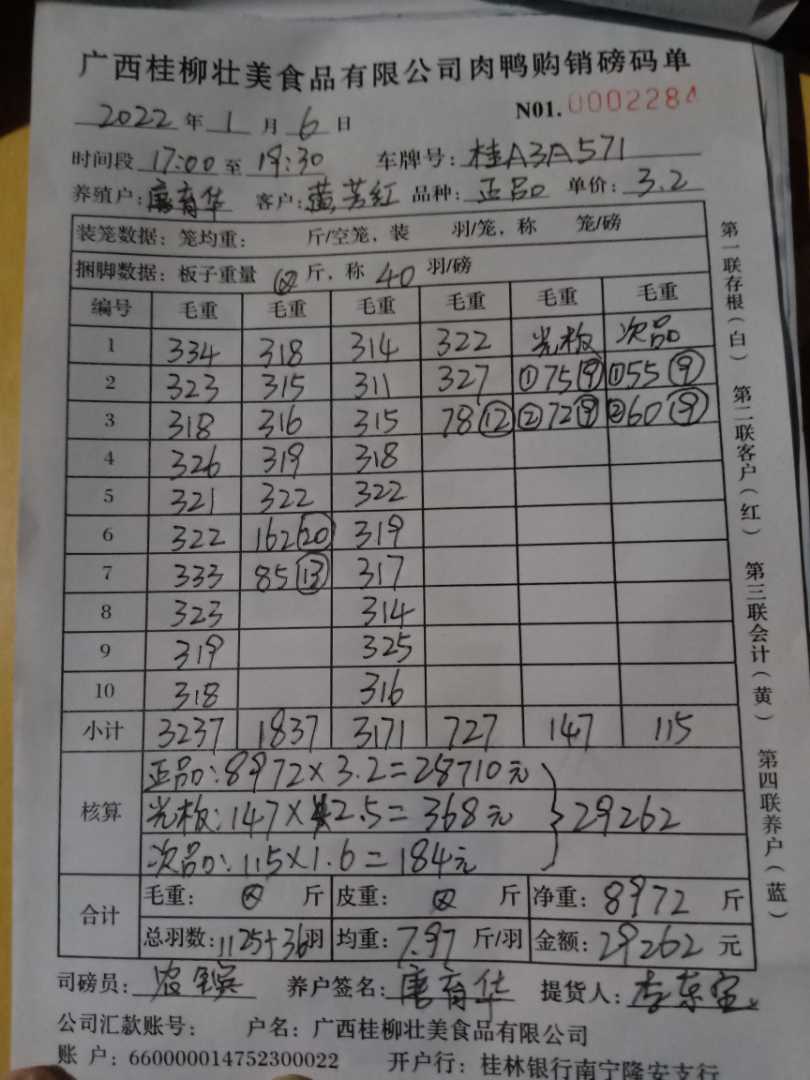 广西桂柳壮美食品有限公司肉鸭购销磅码单
2022年1月6日 N01.0002284
时间段17:00至19:30 车牌号:桂A3A571
养殖户:唐育华 客户:黄芳红 品种:正品 单价:3.2
装笼数据:笼均重: 斤/空笼,装 羽/笼,称 笼/磅
捆脚数据:板子重量 斤,称40羽/磅
编号 毛重 毛重 毛重 毛重 毛重 毛重
1 334 318 314 322 光板 次品
2 323 315 311 327 ①75⑨ ①55⑨
3 318 316 315 78⑫ ②72⑨ ②60⑨
4 326 319 318
5 321 322 322
6 322 162⑳ 319
7 333 85⑬ 317
8 323 314
9 319 325
10 318 316
小计 3237 1837 3171 727 147 115
核算
正品:8972×3.2=28710元
光板:147×2.5=368元 29262
次品:115×1.6=184元
合计
毛重: 斤 皮重: 斤 净重:8972斤
总羽数:1125+36羽 均重:7.97斤/羽 金额:29262元
司磅员: 养户签名:唐育华 提货人:
公司汇款账号: 户名:广西桂柳壮美食品有限公司
账户:660000014752300022 开户行:桂林银行南宁隆安支行
第一联存根(白) 第二联客户(红) 第三联会计(黄) 第四联养户(蓝)